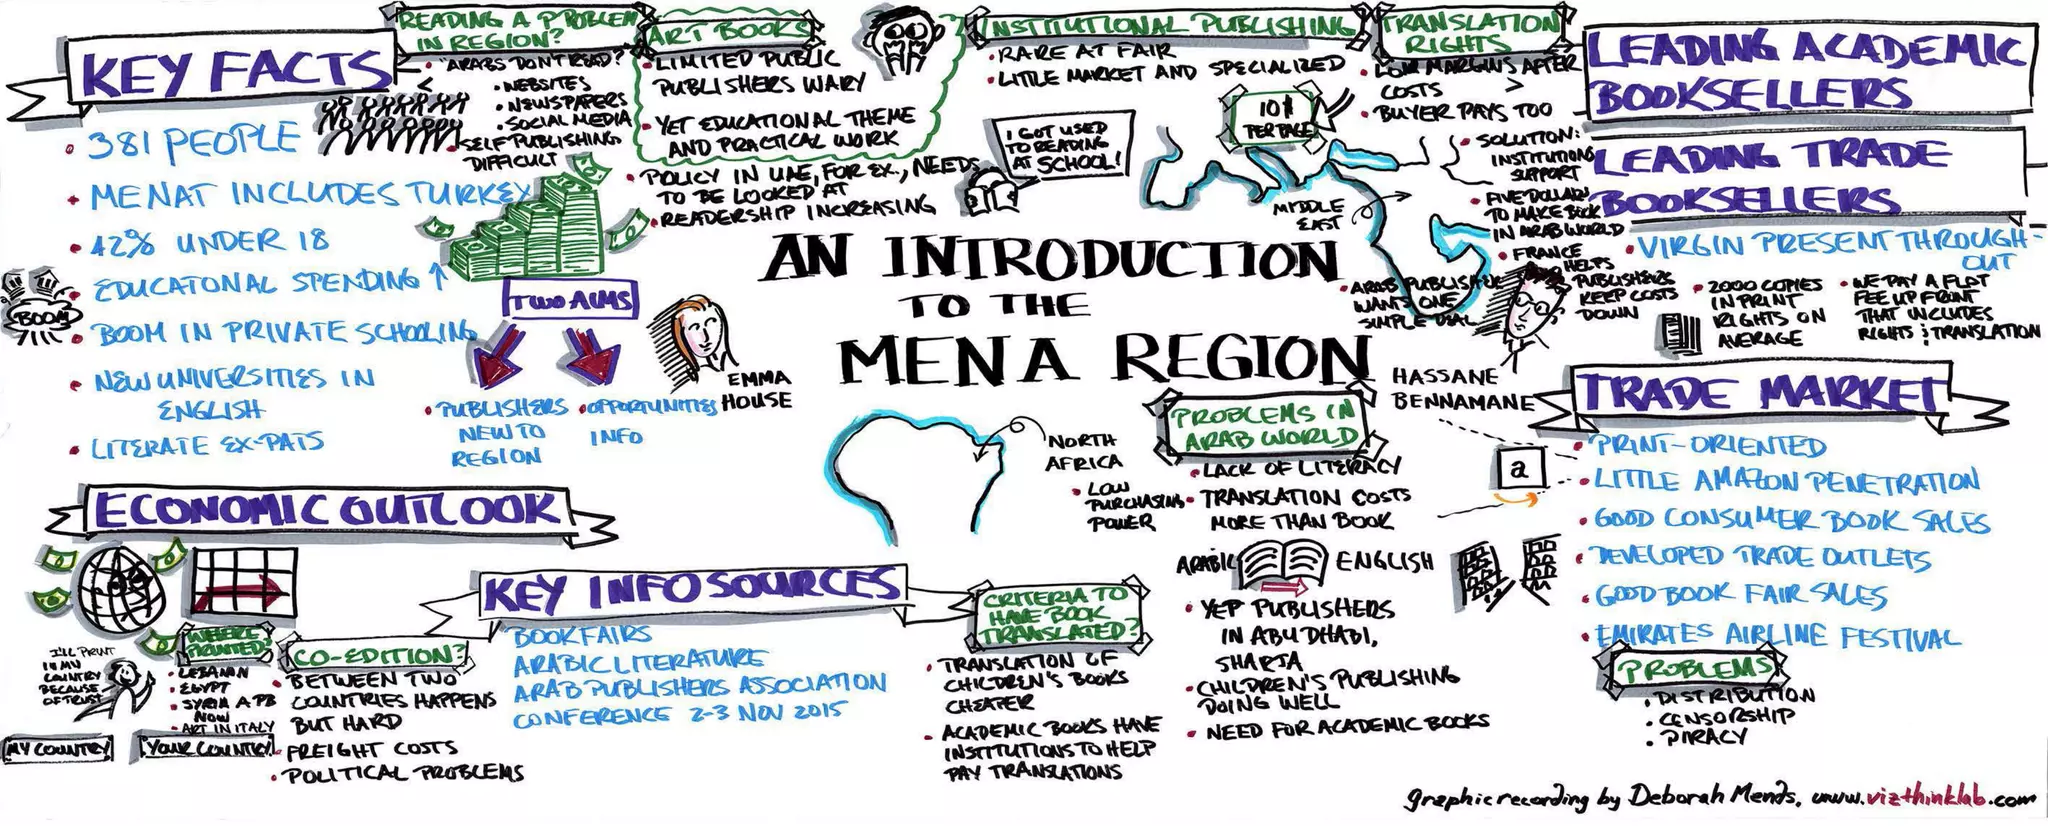 KEY FACTS
• 381 PEOPLE
• MENAT INCLUDES TURKEY
• 42% UNDER 18
• EDUCATONAL SPENDING ↑
BOOM
• BOOM IN PRIVATE SCHOOLING
• NEW UNIVERSITIES IN
ENGLISH
• LITERATE EX-PATS
READING A PROBLEM
IN REGION?
• "ARABS DON'T READ?"
<
• WEBSITES
• NEWSPAPERS
• SOCIAL MEDIA
• SELF PUBLISHING
DIFFICULT
TWO AIMS
• PUBLISHERS
NEW TO
REGION
• OPPORTUNITIES
INFO
EMMA
HOUSE
ART BOOKS
• LIMITED PUBLIC
PUBLISHERS WARY
• YET EDUCATIONAL THEME
AND PRACTICAL WORK
• POLICY IN UAE, FOR EX., NEEDS
TO BE LOOKED AT
• READERSHIP INCREASING
INSTITUTIONAL PUBLISHING
• RARE AT FAIR
• LITTLE MARKET AND SPECIALIZED
I GOT USED
TO READING
AT SCHOOL!
10$
PER PAGE
TRANSLATION
RIGHTS
• LOW MARGINS AFTER
COSTS >
• BUYER PAYS TOO
• SOLUTION:
INSTITUTIONS
SUPPORT
• FIVE DOLLARS
TO MAKE BOOK
IN ARAB WORLD
• FRANCE
HELPS
PUBLISHERS
KEEP COSTS
DOWN
MIDDLE
EAST
• ARAB PUBLISHER
WANTS ONE
SIMPLE DEAL
HASSANE
BENNAMANE
AN INTRODUCTION
TO THE
MENA REGION
LEADING ACADEMIC
BOOKSELLERS
LEADING TRADE
BOOKSELLERS
• VIRGIN PRESENT THROUGH-
OUT
• 2000 COPIES
IN PRINT
RIGHTS ON
AVERAGE
• WE PAY A FLAT
FEE UP FRONT
THAT INCLUDES
RIGHTS & TRANSLATION
TRADE MARKET
• PRINT-ORIENTED
a
• LITTLE AMAZON PENETRATION
• GOOD CONSUMER BOOK SALES
• DEVELOPED TRADE OUTLETS
• GOOD BOOK FAIR SALES
• EMIRATES AIRLINE FESTIVAL
PROBLEMS
• DISTRIBUTION
• CENSORSHIP
• PIRACY
NORTH
AFRICA
• LOW
PURCHASING
POWER
PROBLEMS IN
ARAB WORLD
• LACK OF LITERACY
• TRANSLATION COSTS
MORE THAN BOOK
ARABIC ENGLISH
• YEP PUBLISHERS
IN ABU DHABI,
SHARJA
• CHILDREN'S PUBLISHING
DOING WELL
• NEED FOR ACADEMIC BOOKS
ECONOMIC OUTLOOK
I'LL PRINT
IN MY
COUNTRY
BECAUSE
OF TRUST
MY COUNTRY
YOUR COUNTRY
WHERE
PRINTED?
• LEBANON
• EGYPT
• SYRIA
NOW
• ART IN ITALY
CO-EDITION?
• BETWEEN TWO
COUNTRIES HAPPENS
BUT HARD
• FREIGHT COSTS
• POLITICAL PROBLEMS
KEY INFO SOURCES
BOOKFAIRS
ARABIC LITERATURE
ARAB PUBLISHERS ASSOCIATION
CONFERENCE 2-3 NOV 2015
CRITERIA TO
HAVE BOOK
TRANSLATED?
• TRANSLATION OF
CHILDREN'S BOOKS
CHEAPER
• ACADEMIC BOOKS HAVE
INSTITUTIONS TO HELP
PAY TRANSLATIONS
graphic recording by Deborah Mends, www.vizthinklab.com